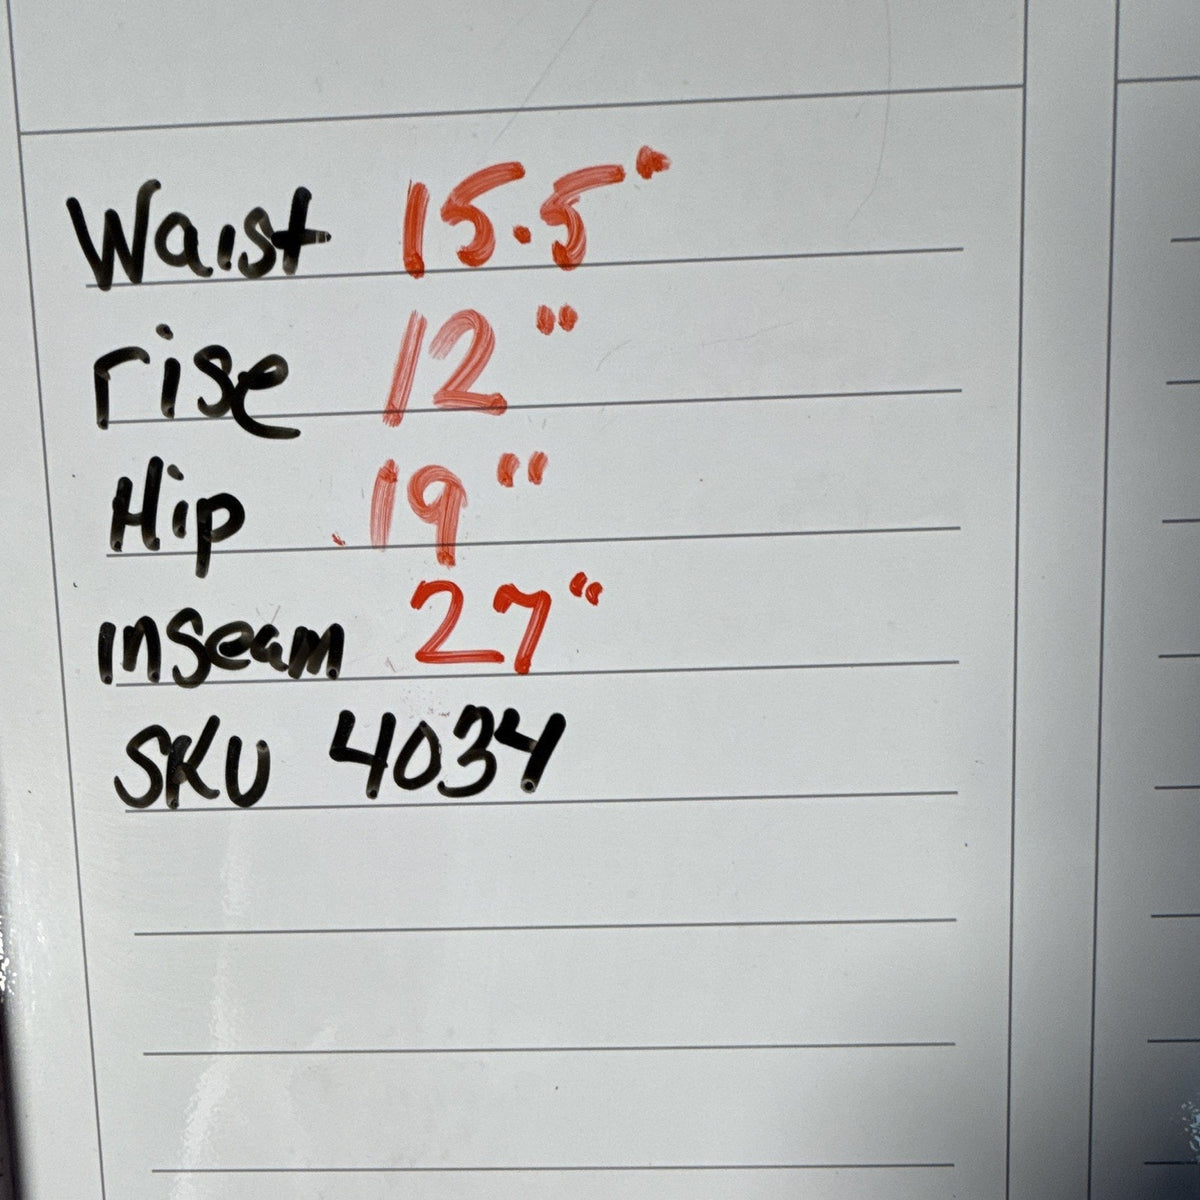 Waist 15.5"
rise 12"
Hip 19"
inseam 27"
SKU 4034